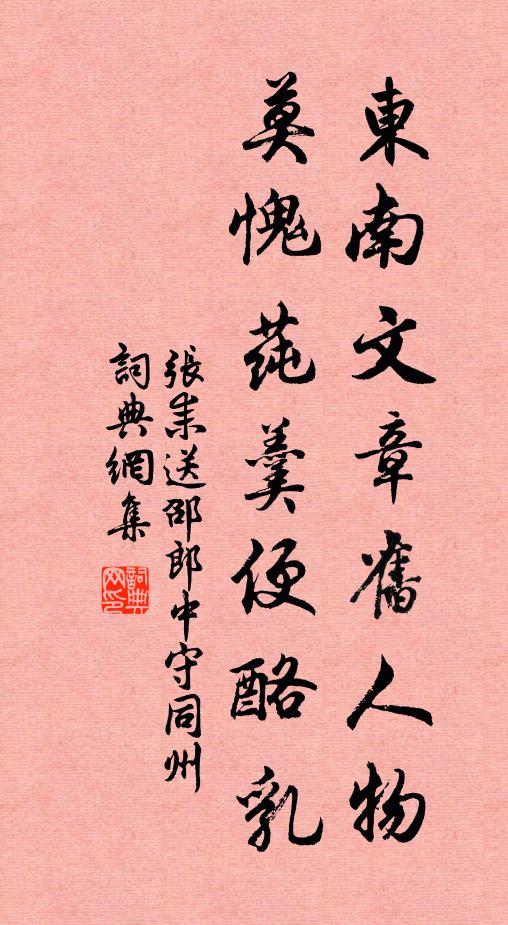 東南文章舊人物
莫愧蒓羹便酪乳
張耒送邵郎中守同州
詞典網集
詞典网印